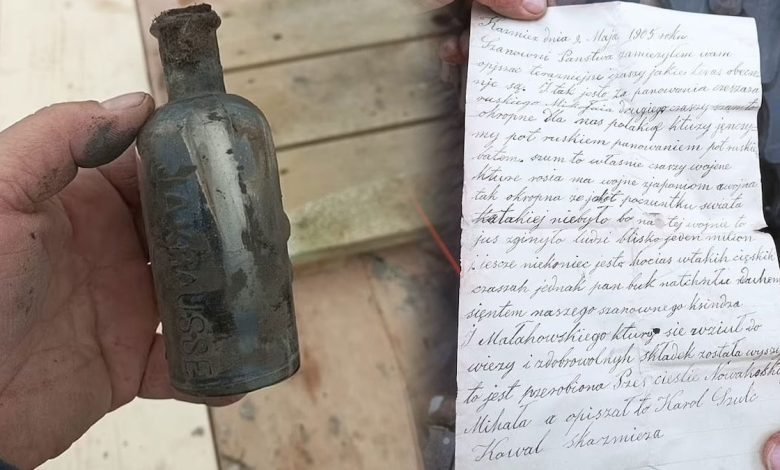 Kazmiez dnia 2 Maja 1905 roku
Szanowni Państwa zamierzyłem wam
opisać terazniejsze czasy jakie teraz obecne
nje są. I tak jesto za panowania czesarza
ruskiego Mikołaja drugiego czasy
okropne dla nas polakuq kturzy jenczy
my pot ruskiem panowaniem pot ruskie
batem. szum to właśnie czasy wojene
kture rosia ma wojne zjaponiom a wojna
tak okropna ze jak poczuntku swiata
takiej niebyło bo na tej wojnie to
jus zginyło ludzi blisko jeden milion
i iescze niekoniec jesta hocias wtakih cięskih
czasah jednak pan buk natchnłu duhem
sięntem naszego szanownego ksindza
J Małahowskiego ktury sie wziuł do
wiezy i zdobrowolnyh składek została wyszy
to jest przerobiona Pszes cieslie Nowakoski
Mihała a opiszał to Karol Szulc
Kowal skazmieza
JAMES
USSE